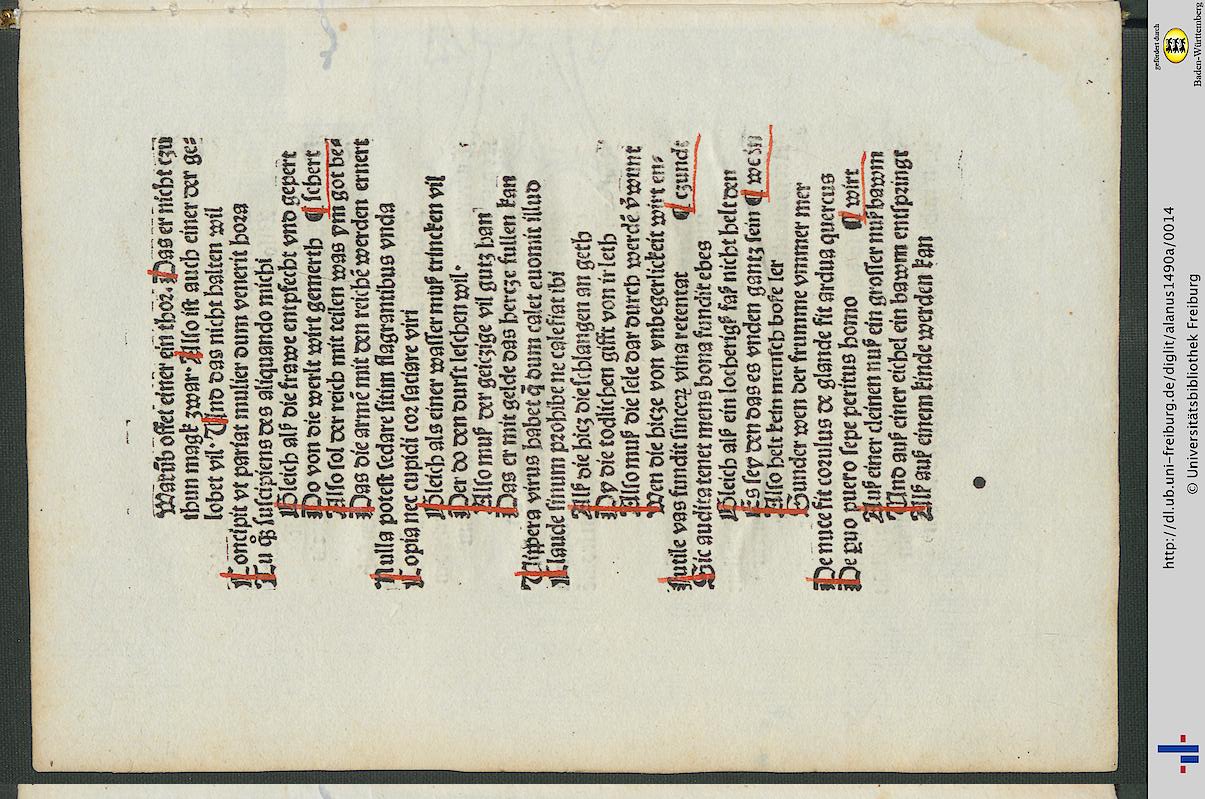 Warūb offet einer ein thor. Das er nicht czu
thum magk zwar. Also ist auch einer der ge=
lobet vil. Und das nicht halten wil
Concipit vt pariat mulier dum venerit hora
Tu qȝ suscipiens des aliquando michi
Gleich alß die frawe empfecht vnd gepert
Do von die werlt wirt gemerth ¶ schert
Also sol der reich mit teilen was ym got be=
Das die armē mit den reichē werden ernert
Nulla potest sedare sitim flagrantibus vnda
Copia nec cupidi cor saciare viri
Gleich als einer wasser muß trincken vil
Der do den durst leschen wil.
Also muß der geiczige vil gutz han
Das er mit gelde das hercze fullen kan
Vippera virus habet qd dum calet euomit illud
Claude sinum prohibe ne calefiat ibi
Alß die hitz die schlangen an geth
Dy die todlichen gifft von ir leth
Also muß die sele dar durch werdē v̄wunt
Wen die hitze von vnbegerlickeit wirt en=
Futile vas fundit sincera vina retentat ¶ czundt
Sic audita tenet mens bona fundit ebes
Gleich alß ein locherigk faß nicht helt den
Es sey den das es vnden gantz sein ¶ wein
Also helt kein mensch boße ler
Sunder wen der frumme ymmer mer
De nuce fit corulus de glande fit ardua quercus
De quo puero sepe peritus homo ¶ wirt
Auß einer cleinen nuß ein grosser nuß bawm
Und auß einer eichel ein bawm entspringt
Alß auß einem kinde werden kan
gefördert durch
Baden-Württemberg
http://dl.ub.uni-freiburg.de/diglit/alanus1490a/0014
© Universitätsbibliothek Freiburg